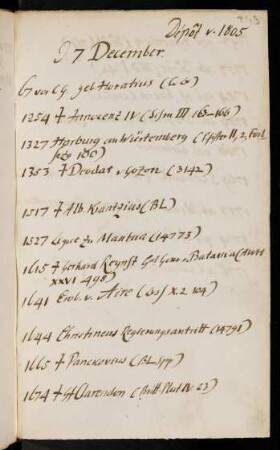 Depôt v. 1805
7 December.
67 vor Ch. geb. Horatius (C. G)
1254 † Innocenz IV (Sism III 165-166)
1327 Horburg an Würtemberg (Pfister II, 2, Forts
S. 180)
1353 † Deodat v. Gozon (3142)
1517 † Alb. Krantzius (BL)
1527 Ligue zu Mantua (14773)
1615 † Gerhard Reynst Gel Gouv v Batavia (Univ
XXVI 498)
1641 Erob. v. Aire (X. 2. 104)
1644 Christinens Regierungsantritt (14791)
1665 † Panckovius (BL)
1674 † Clarendon (Britt Plut IV. 23)